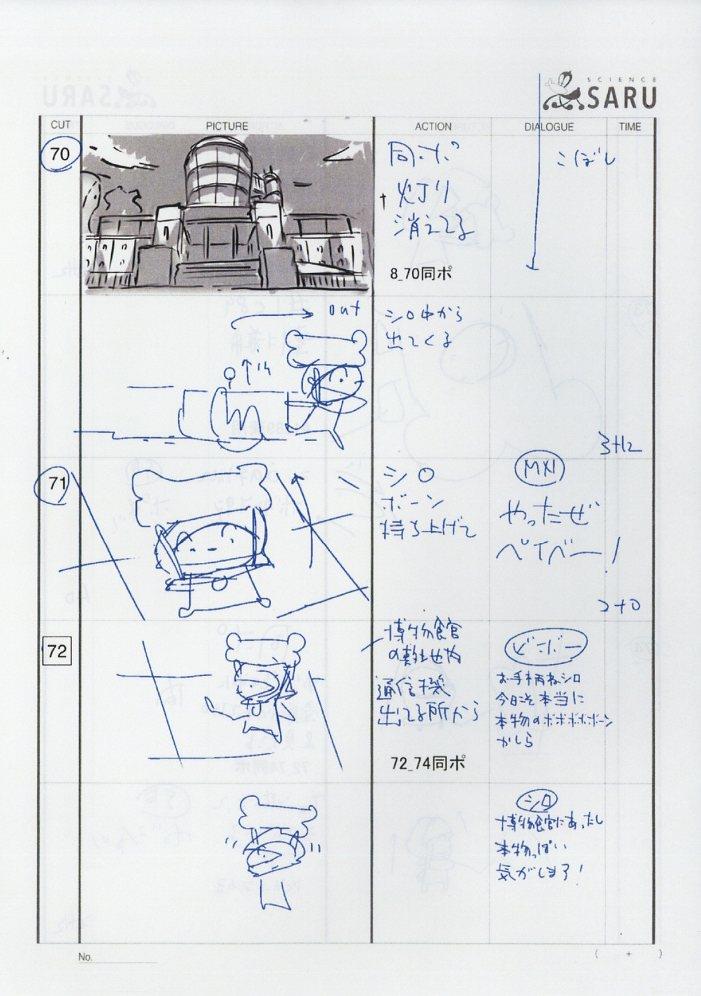 SCIENCE
SARU
CUT
PICTURE
ACTION
DIALOGUE
TIME
70
同ポ
灯り
消えてる
8_70同ポ
こぼし
out
in
シロ中から
出てくる
3+12
71
シロ
ボーン
持ち上げて
MXI
やったぜ
ベイベー!
2+0
72
博物館
の敷地内
通信機
出てる所から
72_74同ポ
ビボー
お手柄ねシロ
今日こそ本当に
本物のボボボボボーン
かしら
シロ
博物館にあったし
本物っぽい
気がします!
No.
( + )